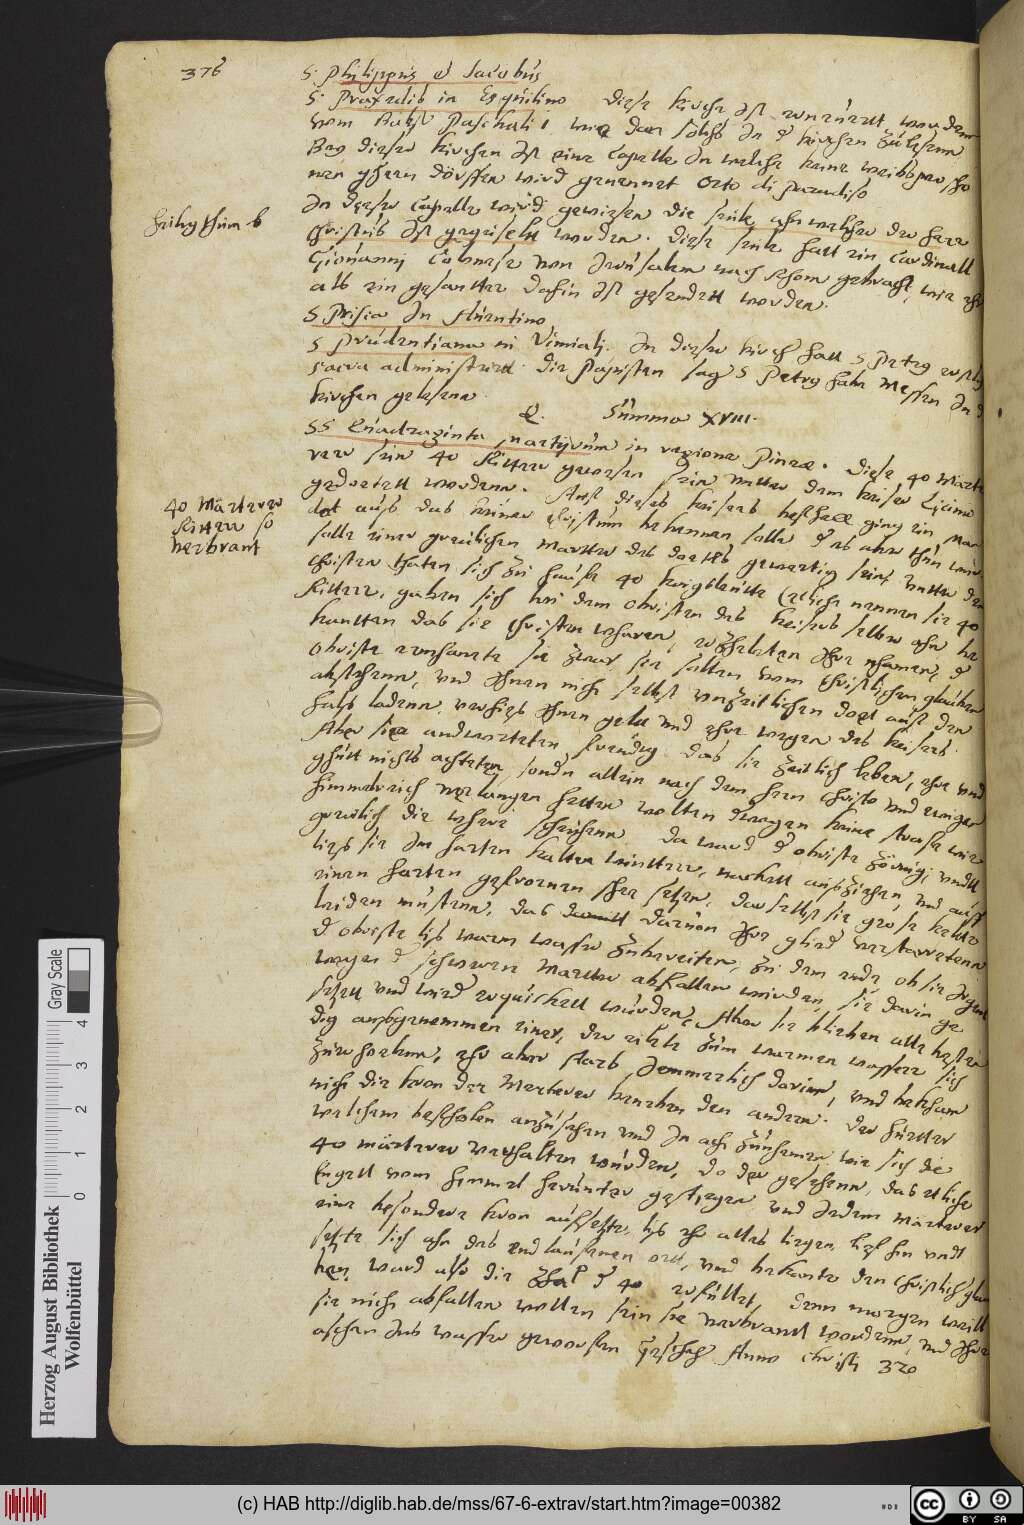 376
S. Philippus et Jacobus
S. Praxedis in Esquilino diese kirche ist ernewertt worden
vom Pabst Paschali
Bey dieser kirchen ist eine Capelle in welche keine weibsper
nen gehen dörffen wird genennet Orto di paradiso
heilig thumb
In dieser Capelle wird gewiesen die seule ahn welcher der herr
Christus ist gegeiselt worden. diese seule hatt ein Cardinall
Giovanni Colonese von Jerusalem nach Rhom gebracht, wie ehr
als ein gesantter dahin ist gesendett worden.
S Prisca in Auentino
S Prudentiana in Viminali. In dieser kirch hatt S Petrus
sacra administrirt. die Papisten sag S Petrus habe Messen in d
kirchen gelesenn
Q. Summa XVIII.
SS Quadraginta martijrum in regione Pineae. diese 40 Märte
rer sein 40 Rittere gewesen sein unter dem keiser Licinio
40 Märterer
Ritter so
verbrant
getoetett worden. Auß dieses keisers
dat auß das keiner Christum bekennen solle
solle einer grewlichen martter des todtes gewertig sein, unter den
Christen thaten sich zu hauffe 40 kriegsleutte (etliche nennen sie 40
Rittere, gaben sich bei dem obristen des keisers selber ahn be
kantten das sie Christen wharen, erzehleten ihre nhamen, d
obriste ermhanete sie zwar sie solten vom Christlichen glauben
abstehenn, und ihnen nicht selbst unzeitlichen dott auff den
halß ladenn, verhieß ihnen gelt und ehre wegen des keisers.
Aber sie andworteten freudig das sie zeitlich leben, ehre und
ghutt nichts achteten, sondern allein nach dem hern Christo und ewigen
himmelreich verlangen hetten wolten deswegen keine straffe wie
grewlich die where scheuhenn da ward d obriste zornig, undt
ließ sie im harten kalten wintter, nackett außziehen, und auff
einen harten gefrornen sehe setzen, daselbst sie grosse kelte
leiden musten, das darvon ihre glied verstarreten
d obriste ließ warm wasser zubereiten, zu dem ende ob sie irgent
wegen d schweren Martter abfallen würden, sie darin ge
setzett und wieder erquickett würden, Aber sie blieben alle bestän
dig außgenommen einer, der eilete zum warmen wasser sich
zuerholen, ehr aber starb jemmerlich darinn, und bekham
nicht die kron der Marterer beneben den andern. der hütter
welchem befholen anzusehen und in acht zunemen wie sich die
40 märterer verhalten würden, do der gesehenn, das etliche
Engell vom himmel herunter gestiegen und jedem märterer
eine besondere kron auffsetzte, ließ ehr alles liegen, lieff hin undt
setzte sich ahn des endlauffenen ort, und bekante den Christlich glau
ben, ward also die zhal d 40 erfüllet, denn morgen weill
sie nicht abfallen wollen sein sie verbrandt worden, und ihre
aschen ins wasser geworffen geschah Anno christi 320
Herzog August Bibliothek
Wolfenbüttel
0 1 2 3 4
Gray Scale
(c) HAB http://diglib.hab.de/mss/67-6-extrav/start.htm?image=00382
cc BY SA